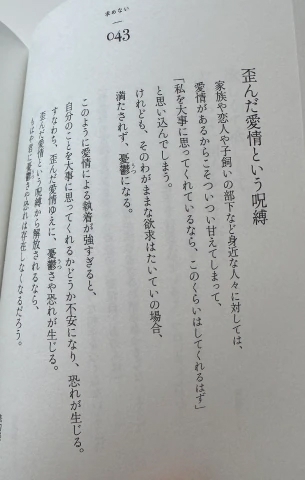 求めない
043
歪んだ愛情という呪縛
家族や恋人や子飼いの部下など身近な人々に対しては、
愛情があるからこそついつい甘えてしまって、
「私を大事に思ってくれているなら、このくらいはしてくれるはず」
と思い込んでしまう。
けれども、そのわがままな欲求はたいていの場合、
満たされず、憂鬱になる。
このように愛情による執着が強すぎると、
自分のことを大事に思ってくれるかどうか不安になり、恐れが生じる。
すなわち、歪んだ愛情ゆえに、憂鬱さや恐れが生じる。
歪んだ愛情という呪縛から解放されるなら、
もはや君に憂鬱さや恐れは存在しなくなるだろう。